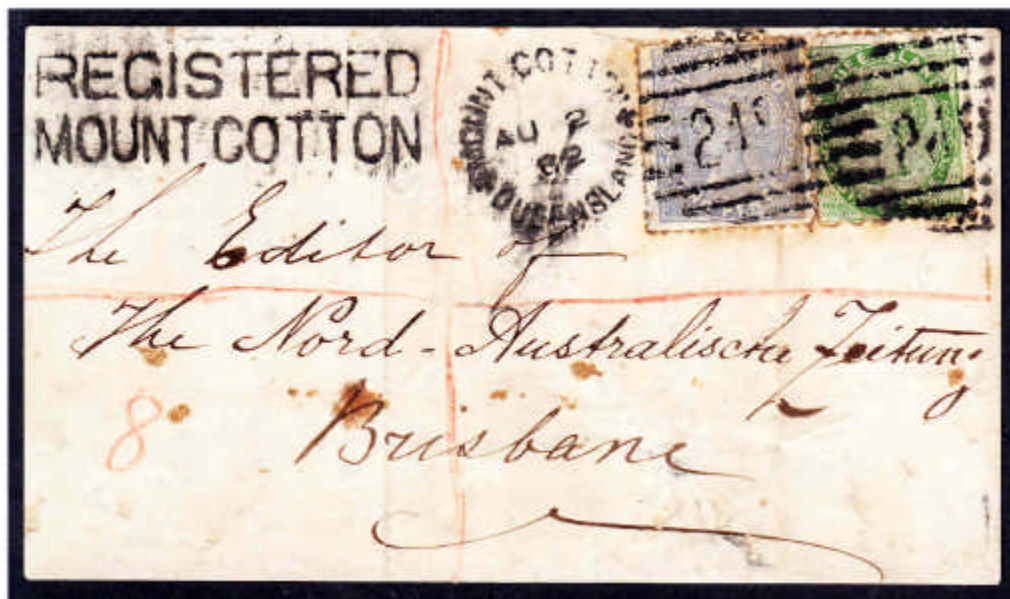 REGISTERED
MOUNT COTTON
MOUNT COTTON
AU 2
82
QUEENSLAND
The Editor of
The Nord-Australische Zeitung
Brisbane
8